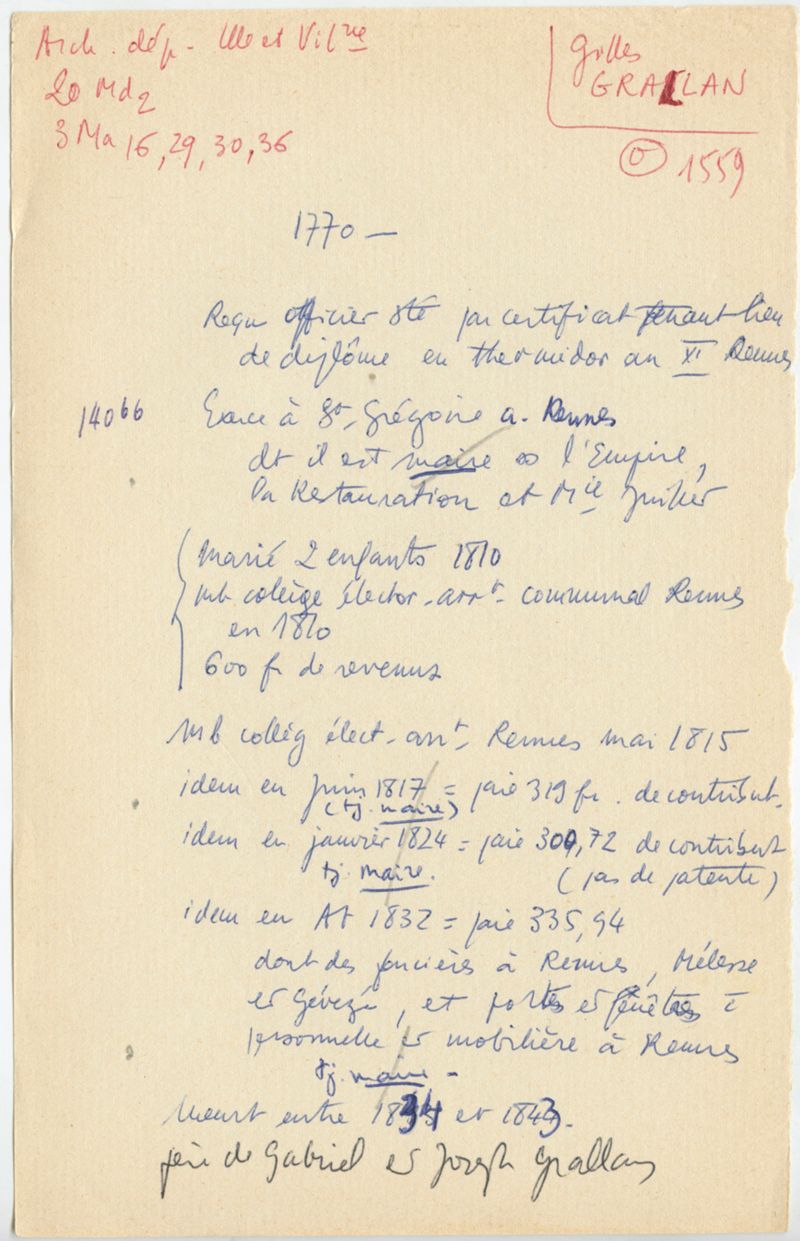 Arch. dép. Ille et Vilne
20 Md2
3 Ma 16, 29, 30, 36
Gilles
GRALLAN
O 1559
1770 —
Reçu officier sté par certificat tenant lieu
de diplôme en thermidor an XI Rennes
14066
Exerce à St. Grégoire a. Rennes
dt il est maire ss l'Empire,
la Restauration et Mie Juillet
marié 2 enfants 1810
mb collège élector. arrt communal Rennes
en 1810
600 fr de revenus
Mb collèg élect. arrt. Rennes mai 1815
idem en Juin 1817 = paie 319 fr. de contribut.
(tj. maire)
idem en janvier 1824 = paie 300,72 de contribut
tj. maire.
(pas de patente)
idem en At 1832 = paie 335,94
dont des foncières à Rennes, Mélesse
et Gévezé, et portes et fenêtres
personnelle et mobilière à Rennes
tj. maire -
Meurt entre 1834 et 1843.
père de Gabriel et Joseph Grallan